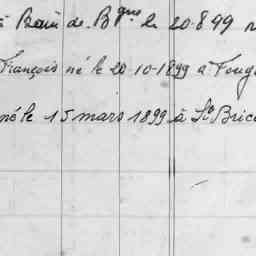 à Bain de Bgne le 20-8-99
François né le 20-10-1899 à Foug
né le 15 mars 1899 à St Brice